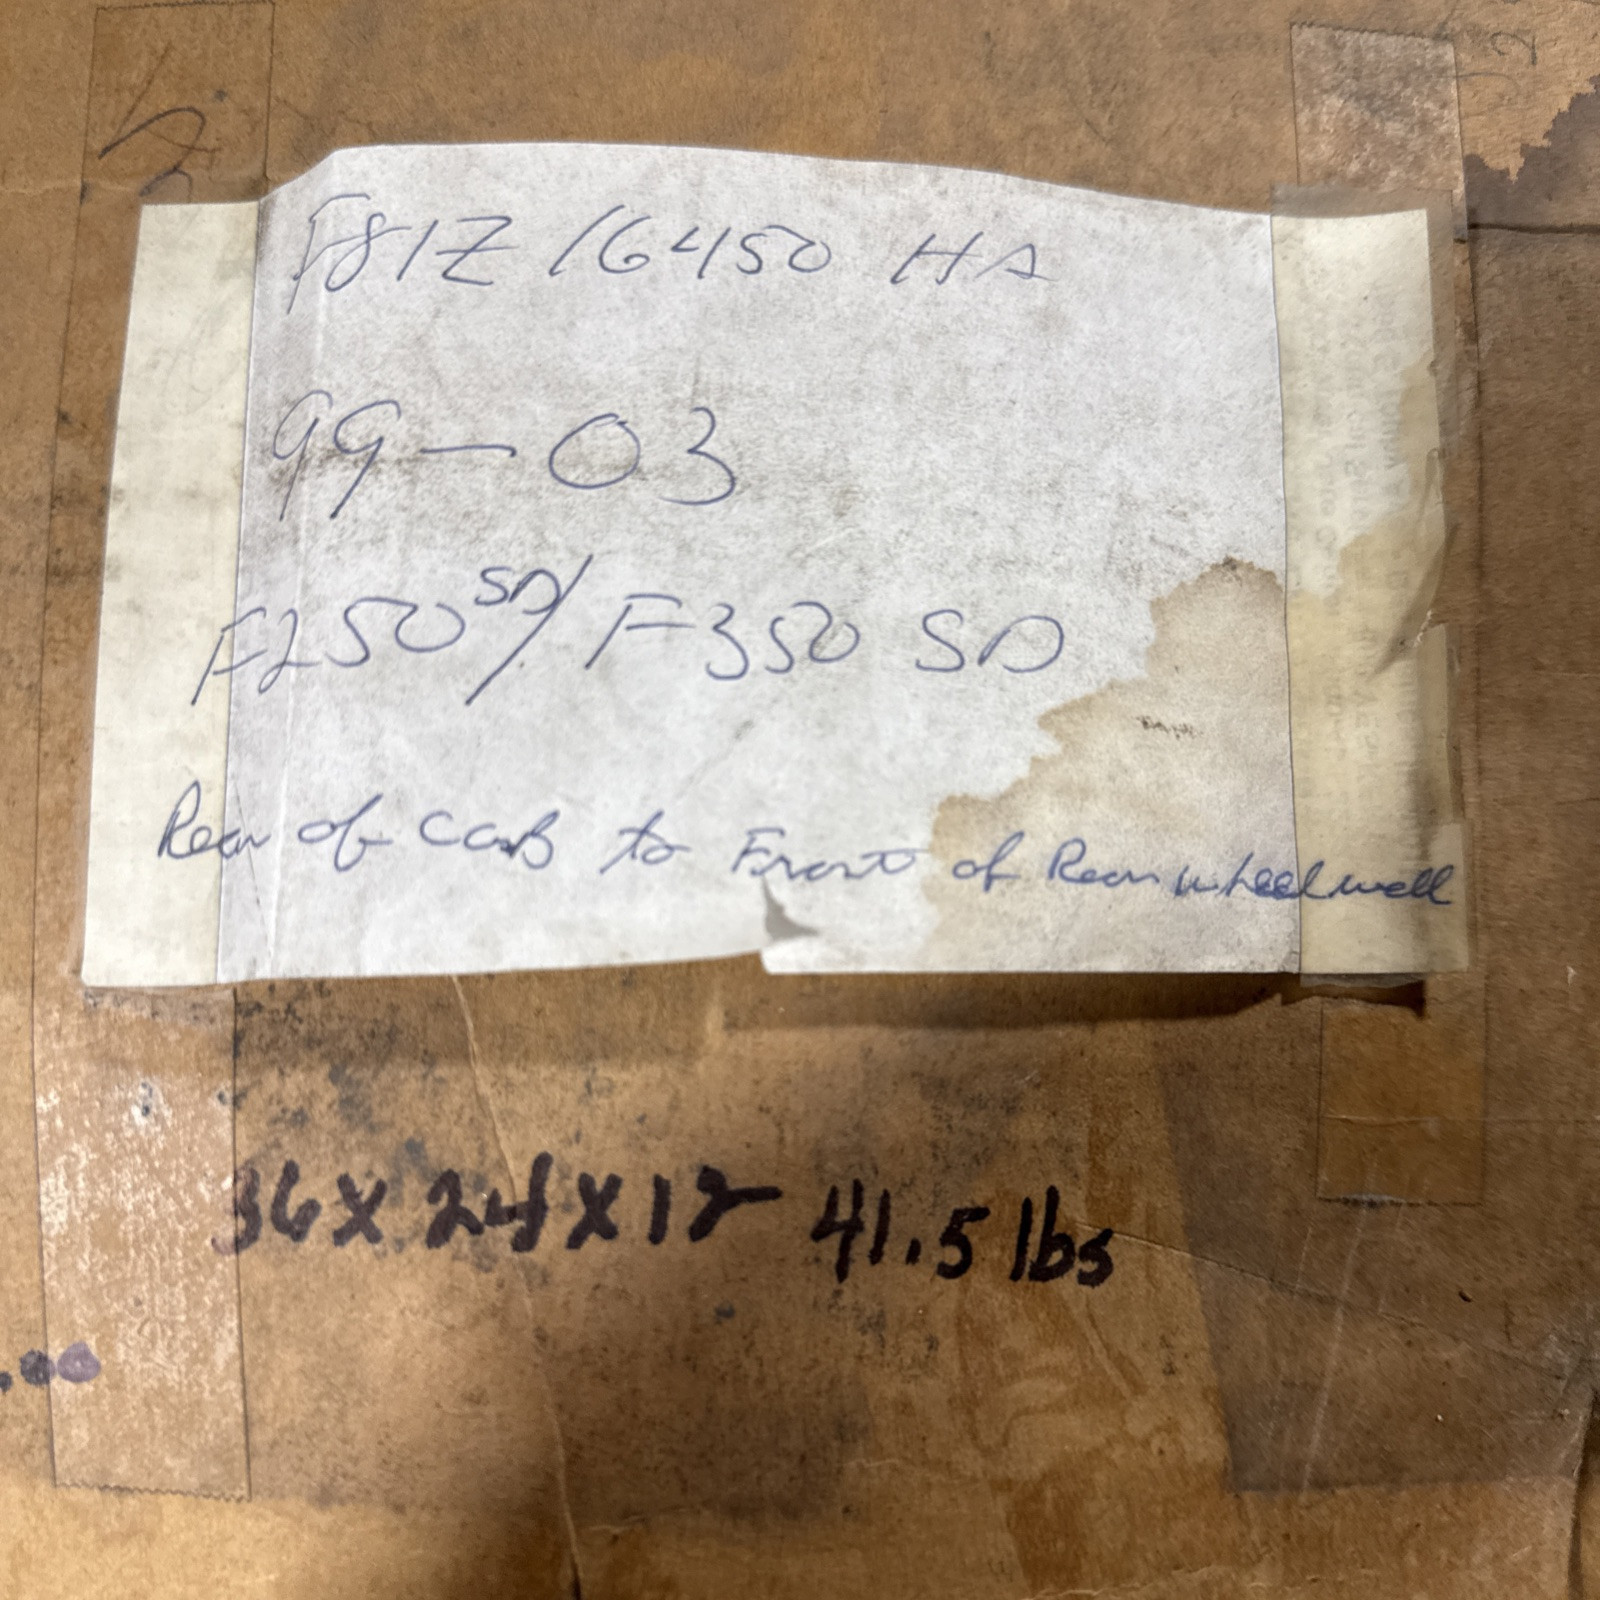 F81Z 16450 HA
99-03
F250 SD/F350 SD
Rear of CaB to Front of Rear wheel well
36X24X12 41.5 lbs